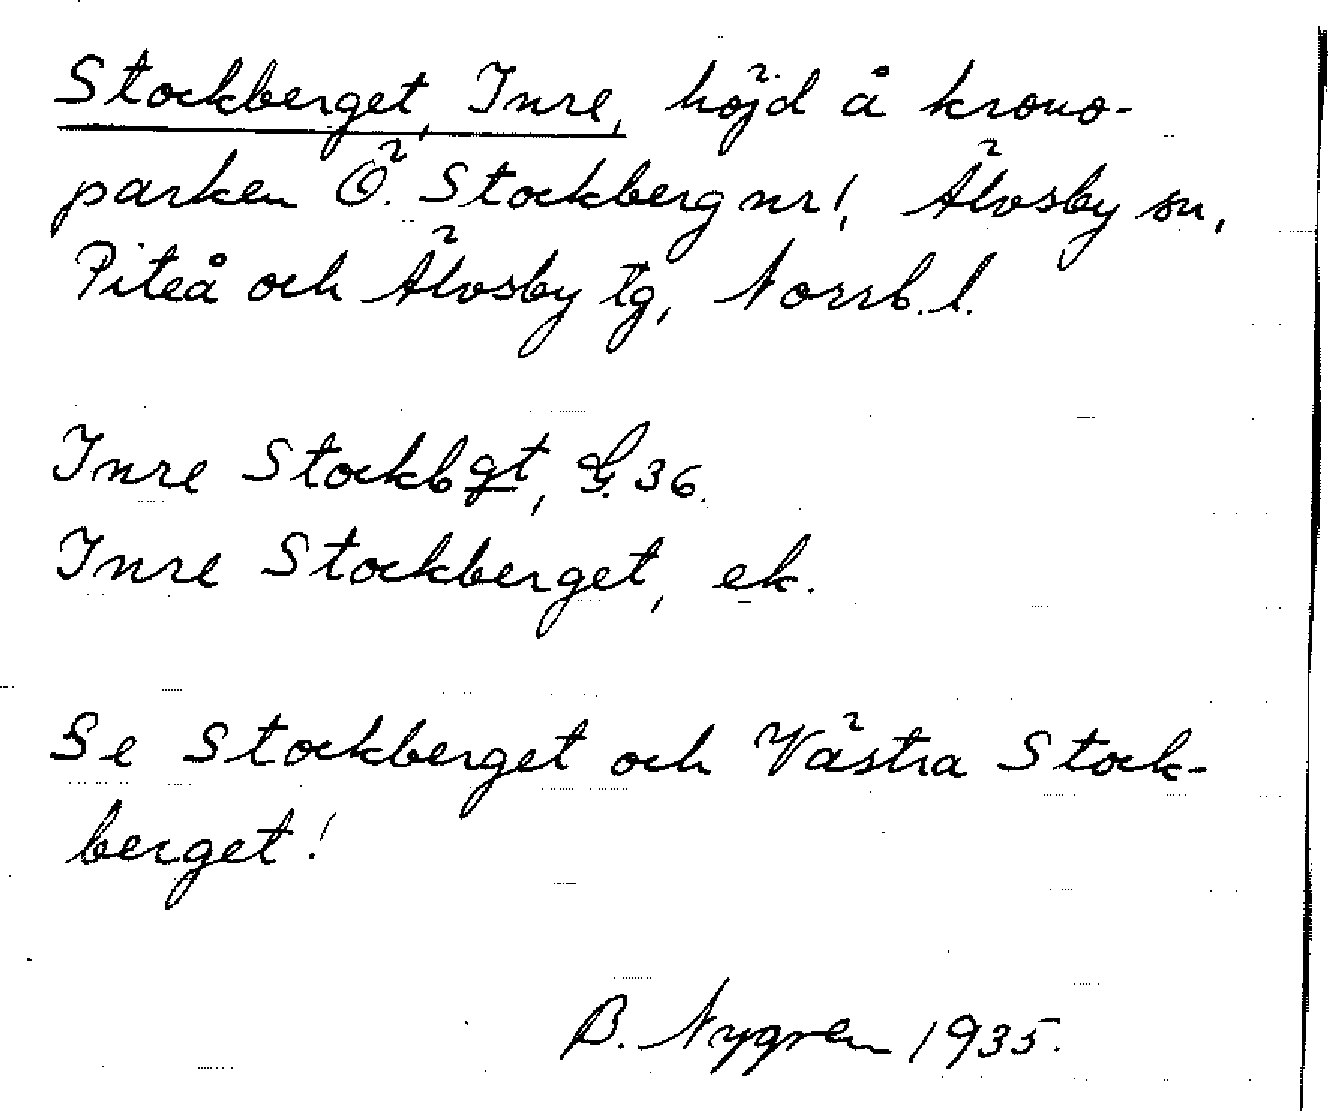 Stockberget, Inre, höjd å krono-
parken Ö. Stockberg nr 1, Älvsby sn,
Piteå och Älvsby tg, Norrb. l.
Inre Stockbgt, G. 36.
Inre Stockberget, ek.
Se Stockberget och Västra Stock-
berget!
B. Nygren 1935.